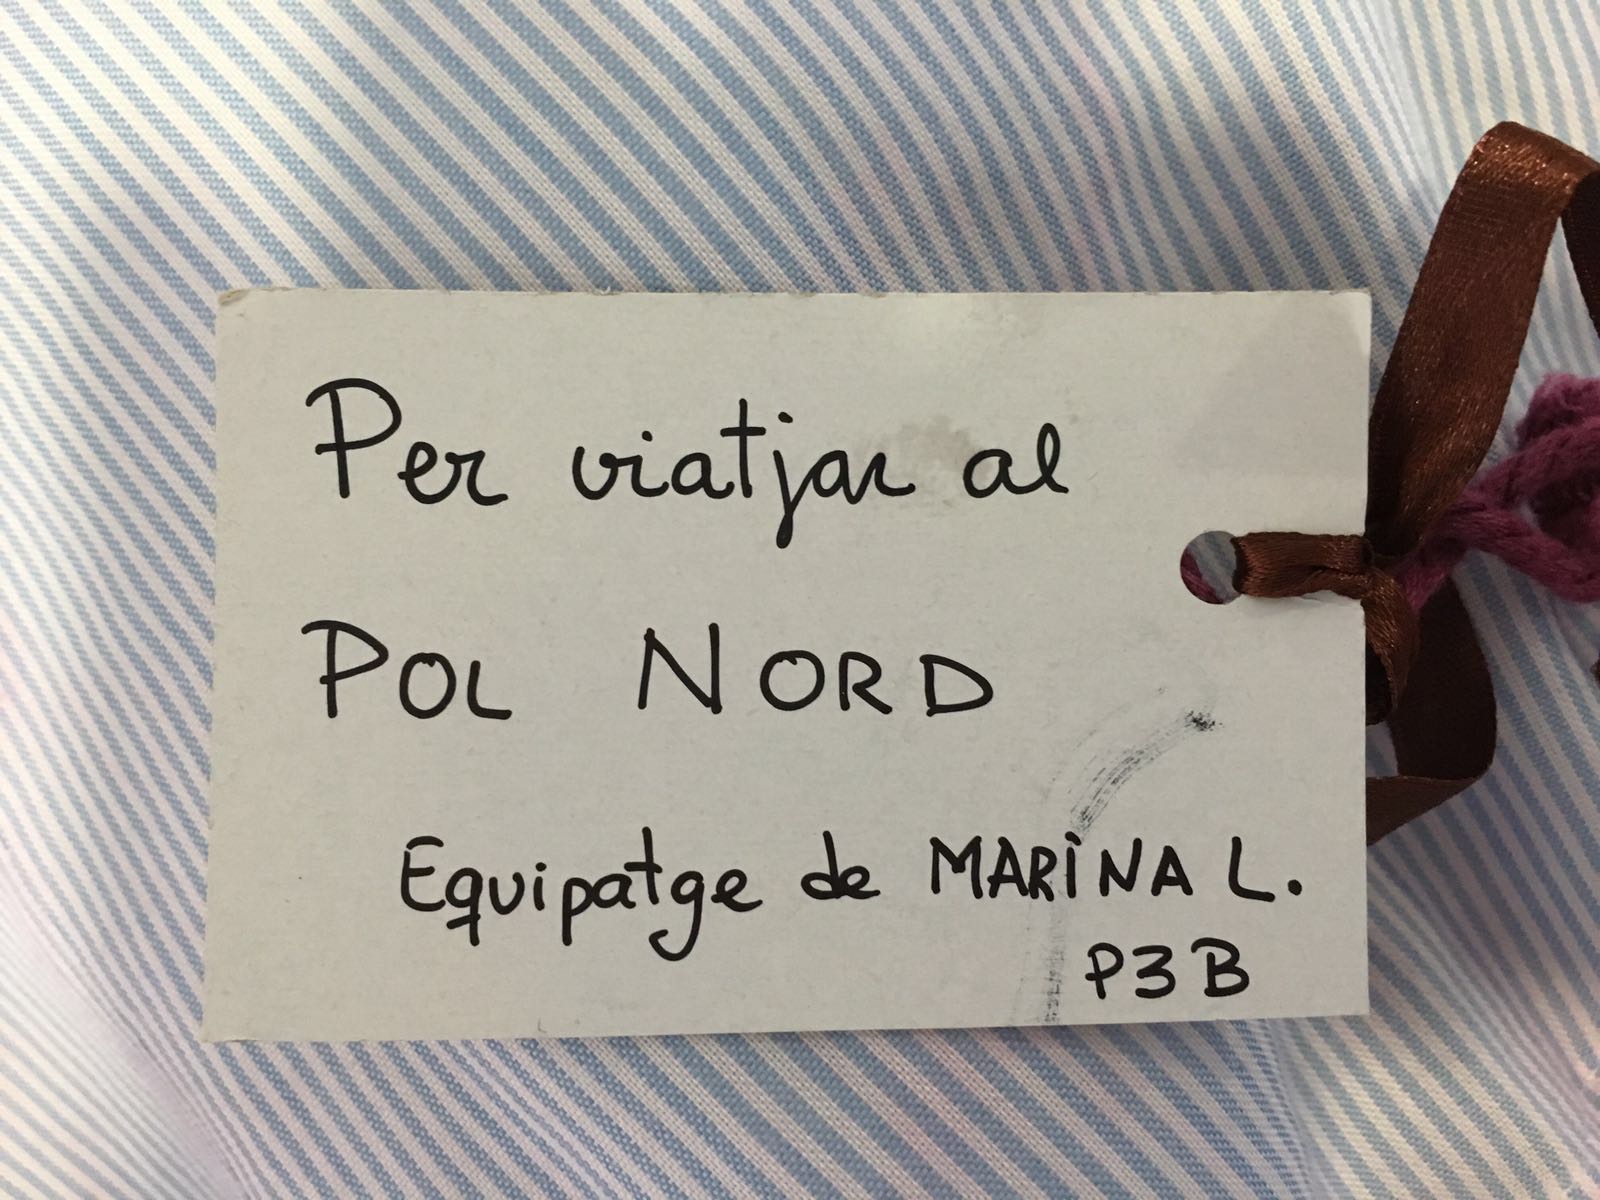 Per viatjar al
POL NORD
Equipatge de MARINA L.
P3B